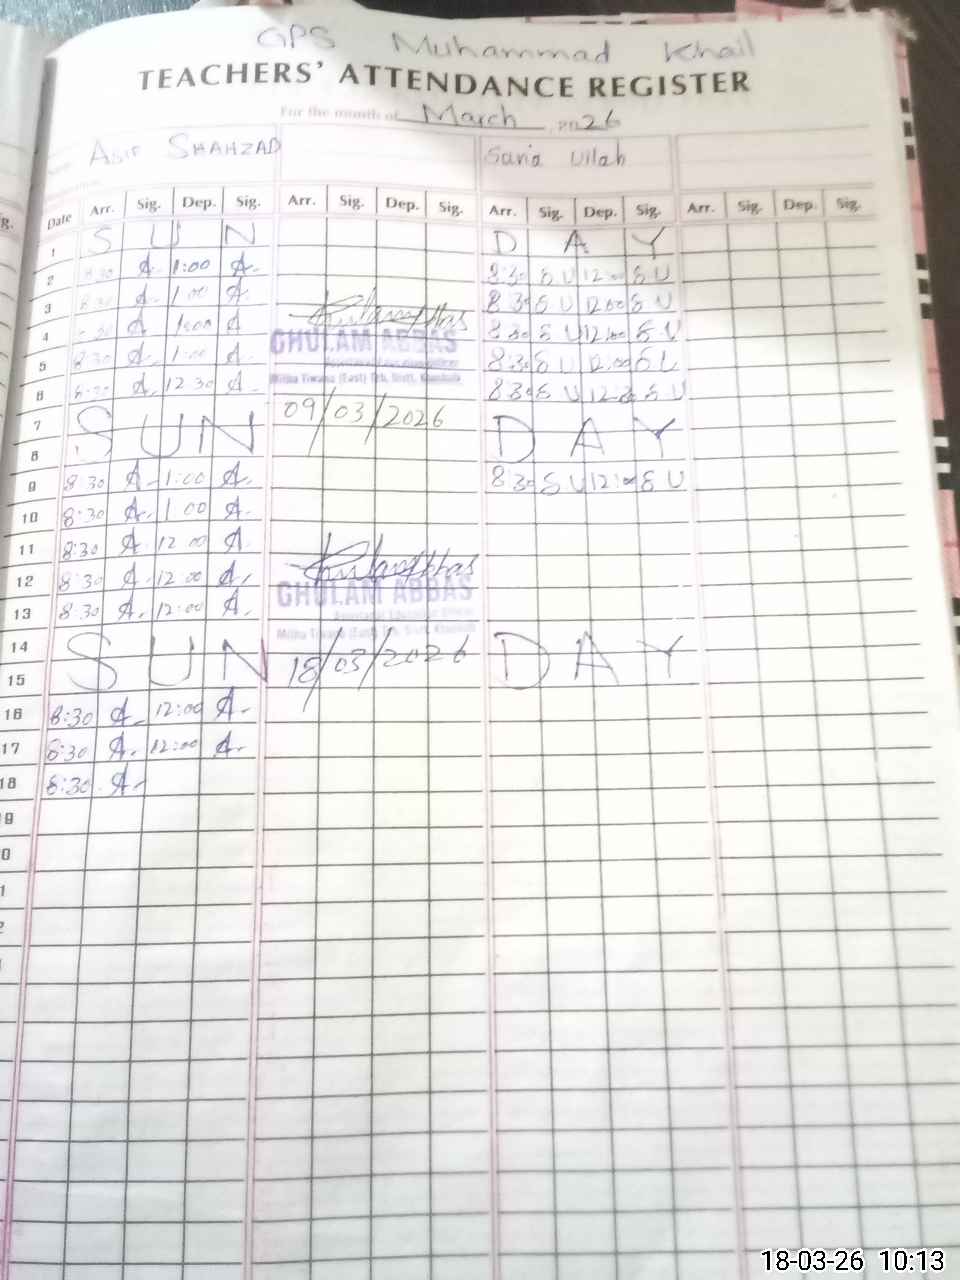 GPS Muhammad Khail
TEACHERS' ATTENDANCE REGISTER
For the month of March 2026
ASIF SHAHZAD Sana Ullah
Date Arr. Sig. Dep. Sig. Arr. Sig. Dep. Sig. Arr. Sig. Dep. Sig. Arr. Sig. Dep. Sig.
1 SUN DAY
2 8:30 A. 1:00 A. 8:30 S U 12:00 S U
3 8:30 A. 1:00 A. 8:30 S U 12:00 S U
4 8:30 A. 1:00 A 8:30 S U 12:00 S U
GHULAM ABBAS
5 8:30 A. 1:00 A. 8:30 S U 12:00 S U
Mitha Tiwana (East) Teh. Distt. Khushab
6 8:30 A. 12 30 A. 8:30 S U S U
7 09/03/2026
8 SUN DAY
9 8 30 A 1:00 A. 8:30 S U 12:00 S U
10 8:30 A. 1 00 A.
11 8:30 A. 12 00 A.
12 8:30 A. 12 00 A.
GHULAM ABBAS
13 8:30 A. 12:00 A.
Mitha Tiwana (East) Teh. Distt. Khushab
14
15 SUN 18/03/2026 DAY
16 8:30 A. 12:00 A.
17 8:30 A. 12:00 A.
18 8:30 A.
18-03-26 10:13